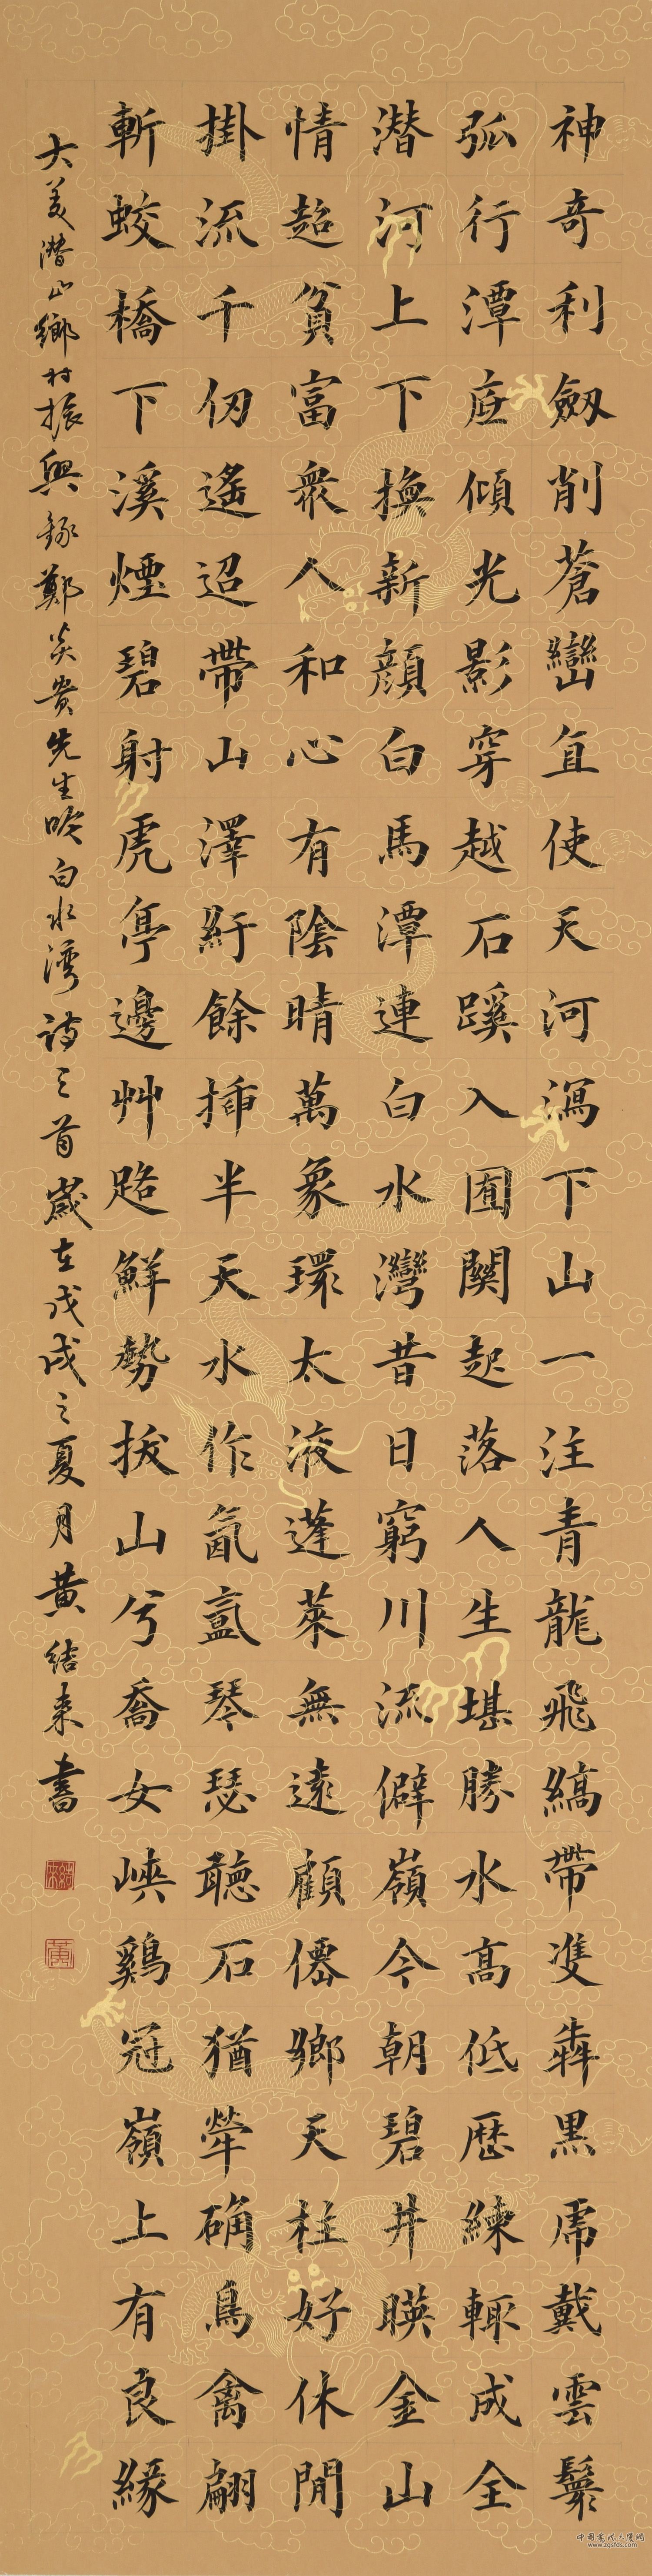 神奇利劔削蒼巒直使天河瀉下山一注青龍飛縞帶雙犇黑虎戴雲鬟
弧行潭底傾光影穿越石蹊入囿關起落人生堪勝水高低歷練輒成全
潛河上下換新顏白馬潭連白水灣昔日窮川流僻嶺今朝碧井暎金山
情超貧富衆人和心有陰晴萬象環太液蓬萊無遠顧僊鄉天柱好休閒
掛流千仞遙迢帶山澤紆餘插半天水作氤氳琴瑟聽石猶犖确鳥禽翩
斬蛟橋下溪煙碧射虎亭邊艸路鮮勢拔山兮喬女峽鷄冠嶺上有良緣
大美潛山鄉村振興錄鄭炎貴先生吟白水灣詩三首歲在戊戌之夏月黃結來書
中国书法大厦网
www.zgsfds.com